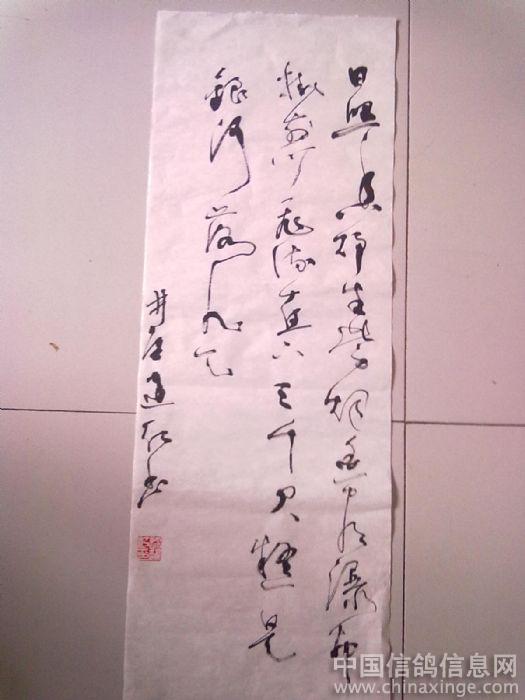 日照香炉生紫烟遥看瀑布
挂前川飛流直下三千尺疑是
銀河落九天
井道书
中国信鸽信息网
www.chinaxinge.com